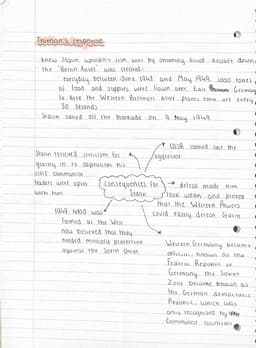 Truman's response
Knew Stalin wouldn't risk war by shooting Allied aircraft down,
the "Berlin Airlift" was created:
Everyday between June 1948 and May 1949, 1000 tonnes
of food and supplies were flown over East Germany
to keep the Western Berliners alive, planes took off every
30 seconds
Stalin called off the blockade on 9 May 1949
USSR looked like the
aggressor
Stalin recieved criticism for
giving in to capitalism, his
still communist
leaders were upset
with him
Consequences for
Stalin
defeat made him
look weak and proved
that the Western Powers
could easily defeat Stalin
1949 NATO was
formed as the West
now believed that they
needed military protection
against the Soviet Union
Western Germany became
official, known as the
Federal Republic of
Germany, the Soviet
Zone became known as
the German democratic
Republic, which was
only recognised by the
Communist countries